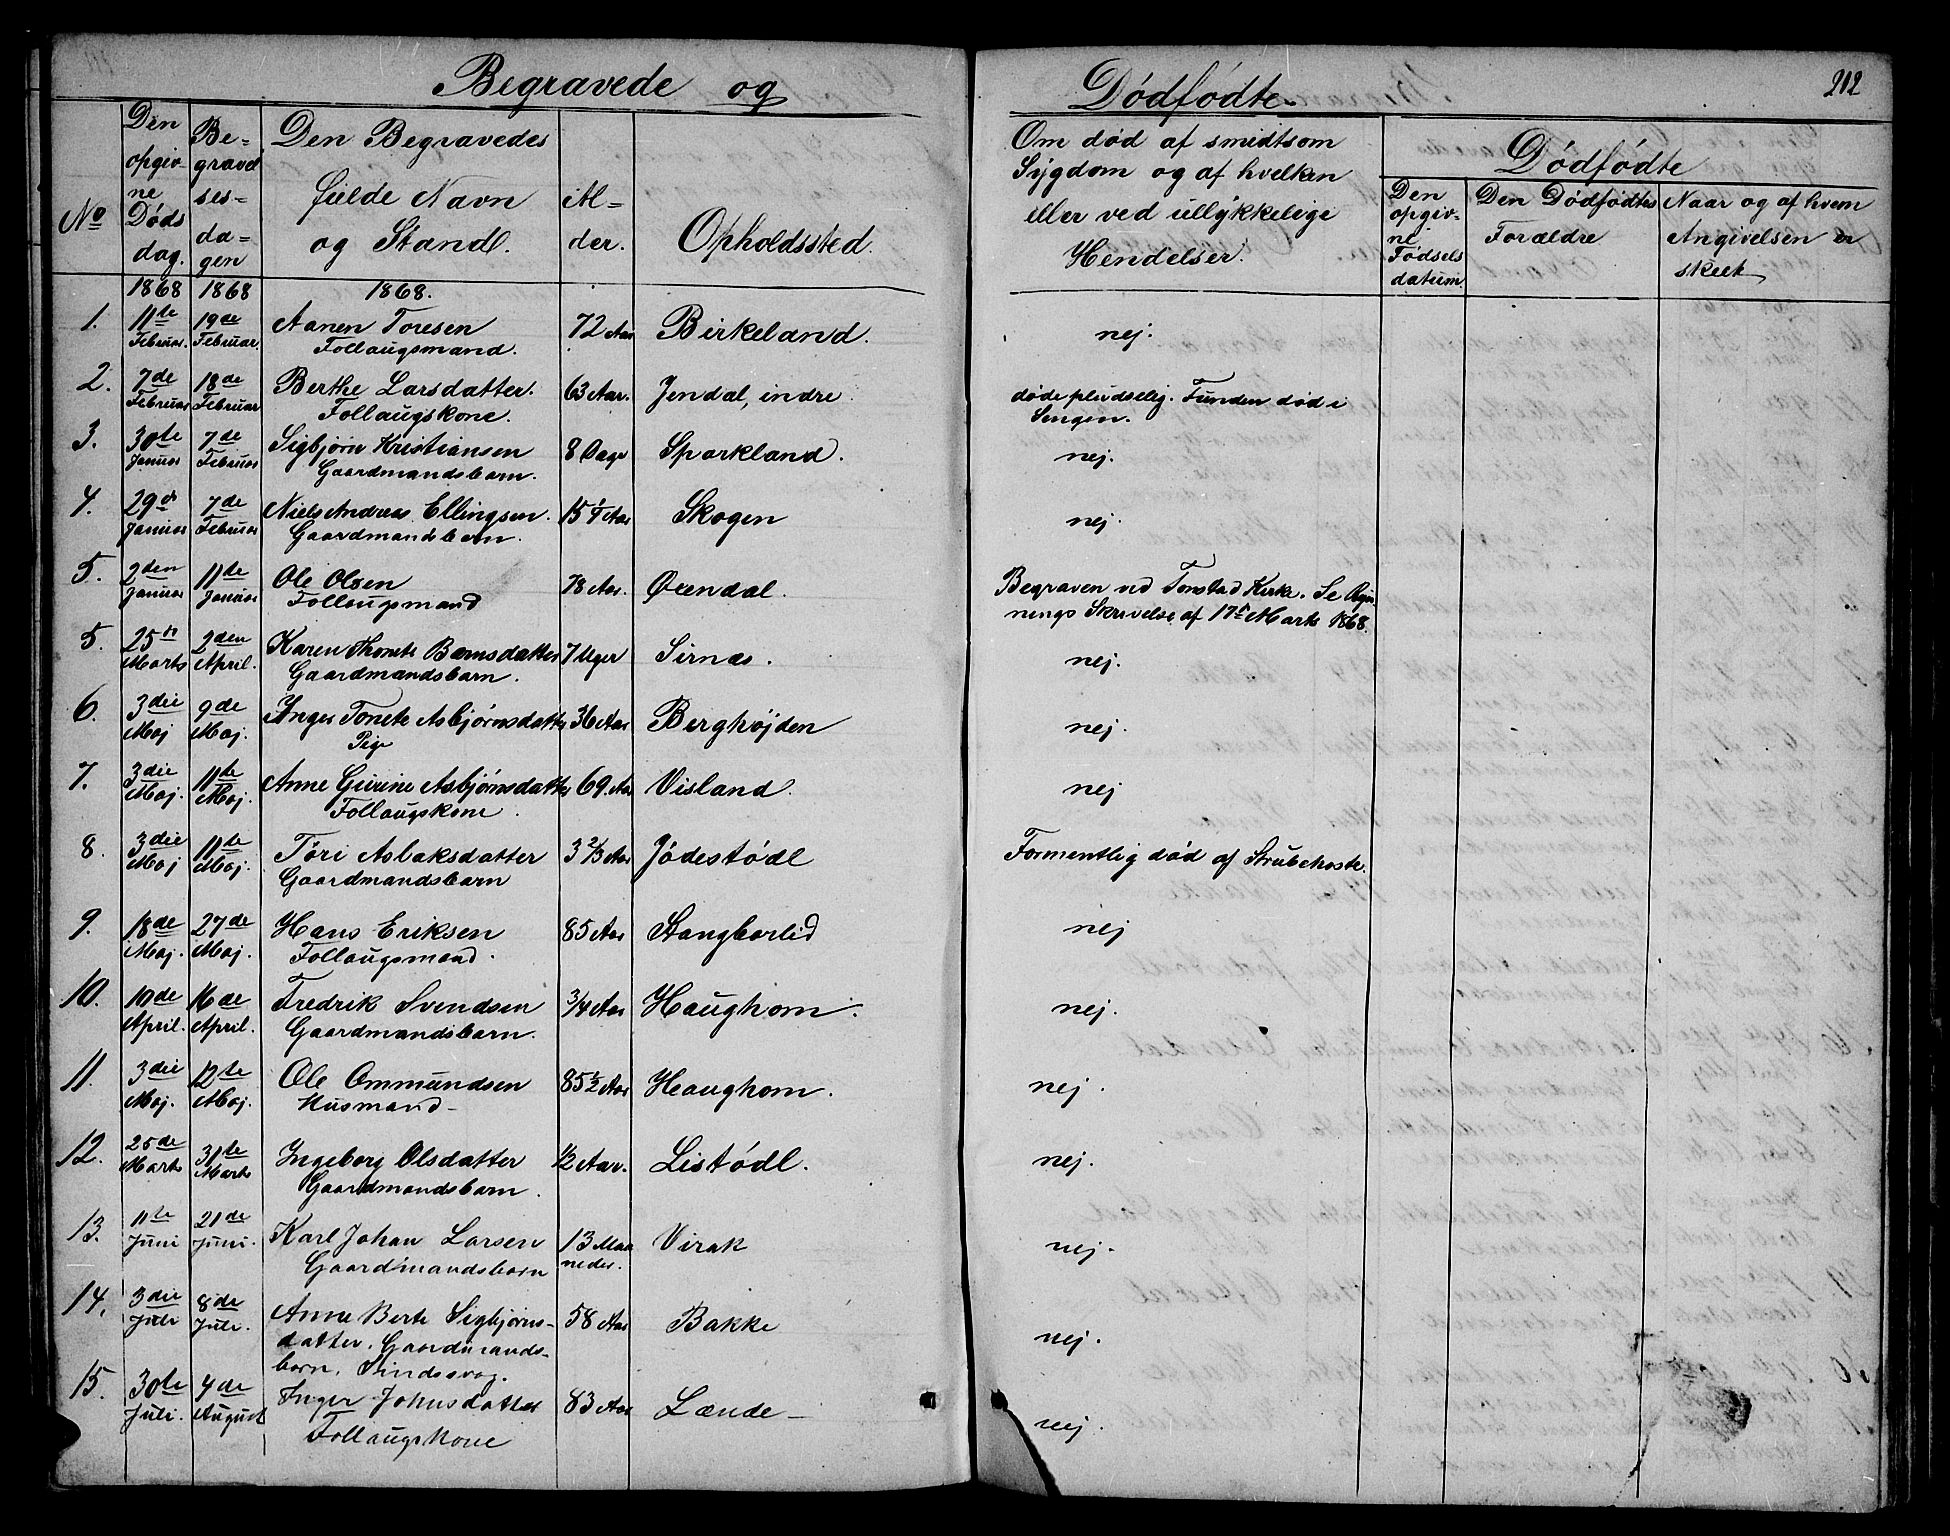 Begravede og Dødfødte.
212
No
Den opgivne Døds dag.
Begravelses-dagen
Den Begravedes fulde Navn og Stand.
Alder.
Opholdssted.
Om død af smidtsom Sygdom og af hvelken eller ved ullykkelige Hendelser.
Dødfødte
Den opgivne Fødsels datum.
Den Dødfødtes Forældre
Naar og af hvem Angivelsen er skeet
1868 1868 1868.
1. 11te 19de Aanen Toresen 72 Aar Birkeland. nej.
Februar. Februar. Follaugsmand.
2. 7de 18de Berthe Larsdatter. 63 Aar. Jendal, indre. døde pludselig. Funden død i
Februar Februar Follaugskone. Sengen.
3. 30te 7de Sigbjørn Kristiansen 8 Dage Sparkland. nej.
Januar Februar Gaardmandsbarn.
4. 29de 7de Niels Andreas Ellingsen. 15 Aar Skogen nej.
Januar Februar Gaardmandsbarn.
5. 2den 11te Ole Olsen 78 Aar. Øvendal. Begraven ved Tonstad Kirke. Se
Januar Januar Follaugsmand Skrivelse af 17de Marts 1868.
5. 25de 2den Karen Thonete Bærnsdatter 7 Uger Sirnæs. nej.
Marts April. Gaardmandsbarn.
6. 3die 9de Inger Tonete Asbjørnsdatter 36 Aar Berghøjden nej.
Maj Maj. Pige
7. 3die 11te Anne Gurine Asbjørnsdatter 69. Aar Visland. nej
Maj. Maj. Follaugskone.
8. 3die 11te Tøri Aslaksdatter 3 2/3 Aar Jødestødl Formentlig død af Strubehoste.
Maj Maj. Gaardmandsbarn
9. 18de 27de Hans Eriksen 85 Aar Stangborlid nej
Maj. Maj. Follaugsmand.
10. 10de 16de Fredrik Svendsen 3/4 Aar Haughom. nej.
April. April. Gaardmandsbarn.
11. 3die 12te Ole Ommundsen 85 1/2 Aar Haughom. nej.
Maj. Maj. Husmand
12. 25de 31te Ingeborg Olsdatter 1/2 Aar. Listødl. nej.
Marts Marts Gaardmandsbarn.
13. 11te 21de Karl Johan Larsen 13 Maa Virak nej.
Juni Juni. Gaardmandsbarn neder.
14. 3die 8de Anne Berte Sigbjørns- 58 Aar Bakke nej.
Juli Juli. datter. Gaardmands-
barn. Sindssvag.
15. 30te 4de Inger Johnsdatter 83 Aar Lænde nej.
Juli. August Follaugskone